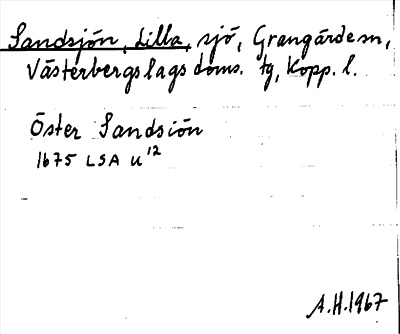 Sandsjön, Lilla, sjö, Grangärde sn,
Västerbergslags doms. tg, Kopp. l.
Öster Sandsiön
1675 LSA U¹²
A.H. 1967